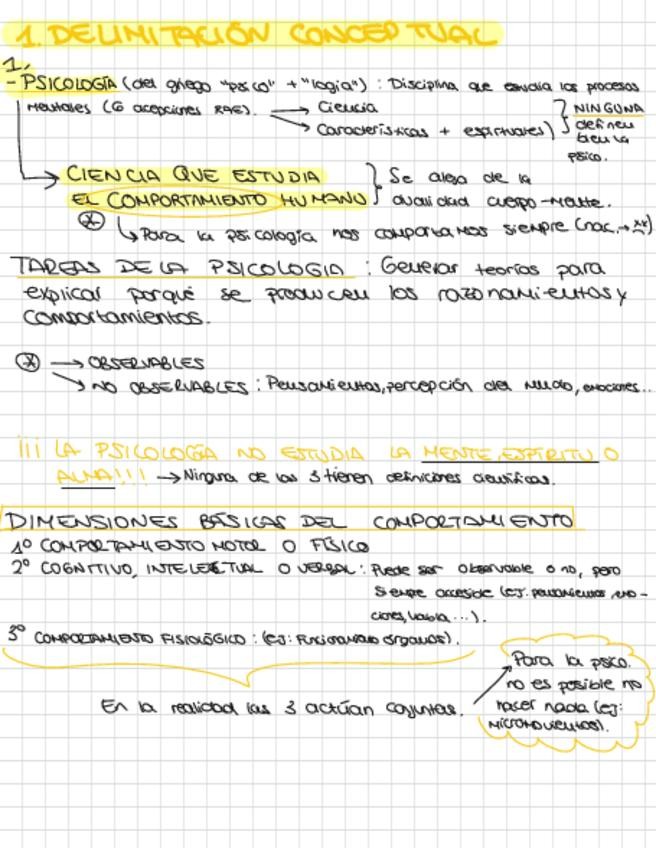 1. DELIMITACIÓN CONCEPTUAL
1.
- PSICOLOGÍA (del griego "psico" + "logia") : Disciplina que estudia los procesos
Mentales (6 acepciones RAE). → Ciencia
→ Características + espirituales)
NINGUNA
definen
bien la
psico.
CIENCIA QUE ESTUDIA
EL COMPORTAMIENTO HUMANO
Se aleja de la
dualidad cuerpo-mente.
Para la psicología nos comportamos siempre (nac. →
TAREAS DE LA PSICOLOGIA : Generar teorías para
explicar porqué se producen los razonamientos y
comportamientos.
→ OBSERVABLES
→ NO OBSERVABLES : Pensamientos, percepción del mundo, emociones...
¡¡¡ LA PSICOLOGÍA NO ESTUDIA LA MENTE, ESPÍRITU O
ALMA!!! → Ninguna de las 3 tienen definiciones científicas.
DIMENSIONES BÁSICAS DEL COMPORTAMIENTO
1º COMPORTAMIENTO MOTOR O FÍSICO
2º COGNITIVO, INTELECTUAL O VERBAL : Puede ser observable o no, pero
siempre accesible (ej: pensamientos, emo-
ciones, habla...).
3º COMPORTAMIENTO FISIOLÓGICO : (ej: Funcionamiento órganos).
En la realidad las 3 actúan conjuntas.
Para la psico.
no es posible no
hacer nada (ej:
micromovimientos).